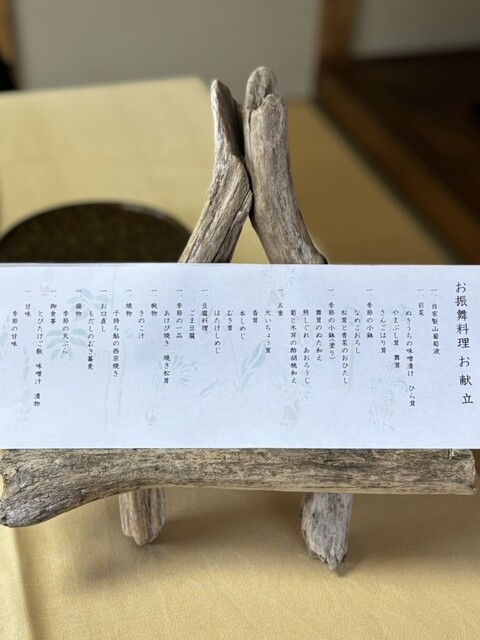 お振舞料理 お献立
一 自家製山葡萄液
一 前菜
ぬきうちの味噌漬け ひら茸
やまぶし茸 舞茸
さんごはり茸
一 季節の小鉢
なめこおろし
松茸と青菜のおひたし
一 季節の小鉢(塗り)
舞茸のぬた和え
熊しぐれ、あおろうじ
菊と木耳の酢胡桃和え
一 五重
大いちょう茸
香茸
むき茸
本しめじ
はたけしめじ
一 豆腐料理
ごま豆腐
一 季節の一品
あけび焼き 焼き松茸
一 椀物
きのこ汁
一 焼物
子持ち鮎の西京焼き
一 お口直し
もだしのむき蕎麦
一 揚物
季節の天ぷら
一 御食事
とびたけご飯 味噌汁 漬物
一 甘味
季節の甘味